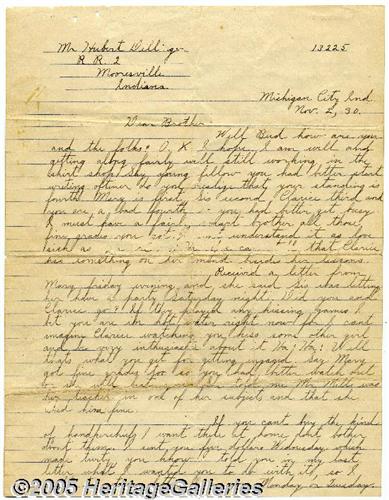 Mr Hubert Dillinger 13225
R R. 2
Mooresville
Indiana
Michigan City Ind
Nov. 2, 30.
Dear Brother
Well Bud how are you
and the folks? O, K. I hope, I am well and
getting along fairly well still working in the
shirt shop. Say young fellow you had better start
writing oftner do you realize that your standing is
fourth. Mary is first, Sis second Clarice third and
you are a bad fourth
I must have a
grades you understand it as love
sick as that Clarice
has something on her mind besides her lessons.
Recived a letter from
Mary friday evening, and she said Sis was letting
her have a party Saturday night. Did you and
Clarice go? if they played any kissing games I
bet you are in hot water right now for I cant
imagine Clarice watching you kiss some other girl
and be very enthusiastic about it Ha; Ha; Well
thats what you get for getting engaged. Say Mary
got fine grades for so you had better watch out
or she will told me Mr Mills was
her teacher in one of her subjects and that she
liked him fine.
If you cant buy the kind
of handkerchiefs I want there at home dont bother
about them. I sent you five dollars Wednesday which
you told you in my last
letter what I wanted you to do with it, so I
Monday or Tuesday.
©2005 HeritageGalleries